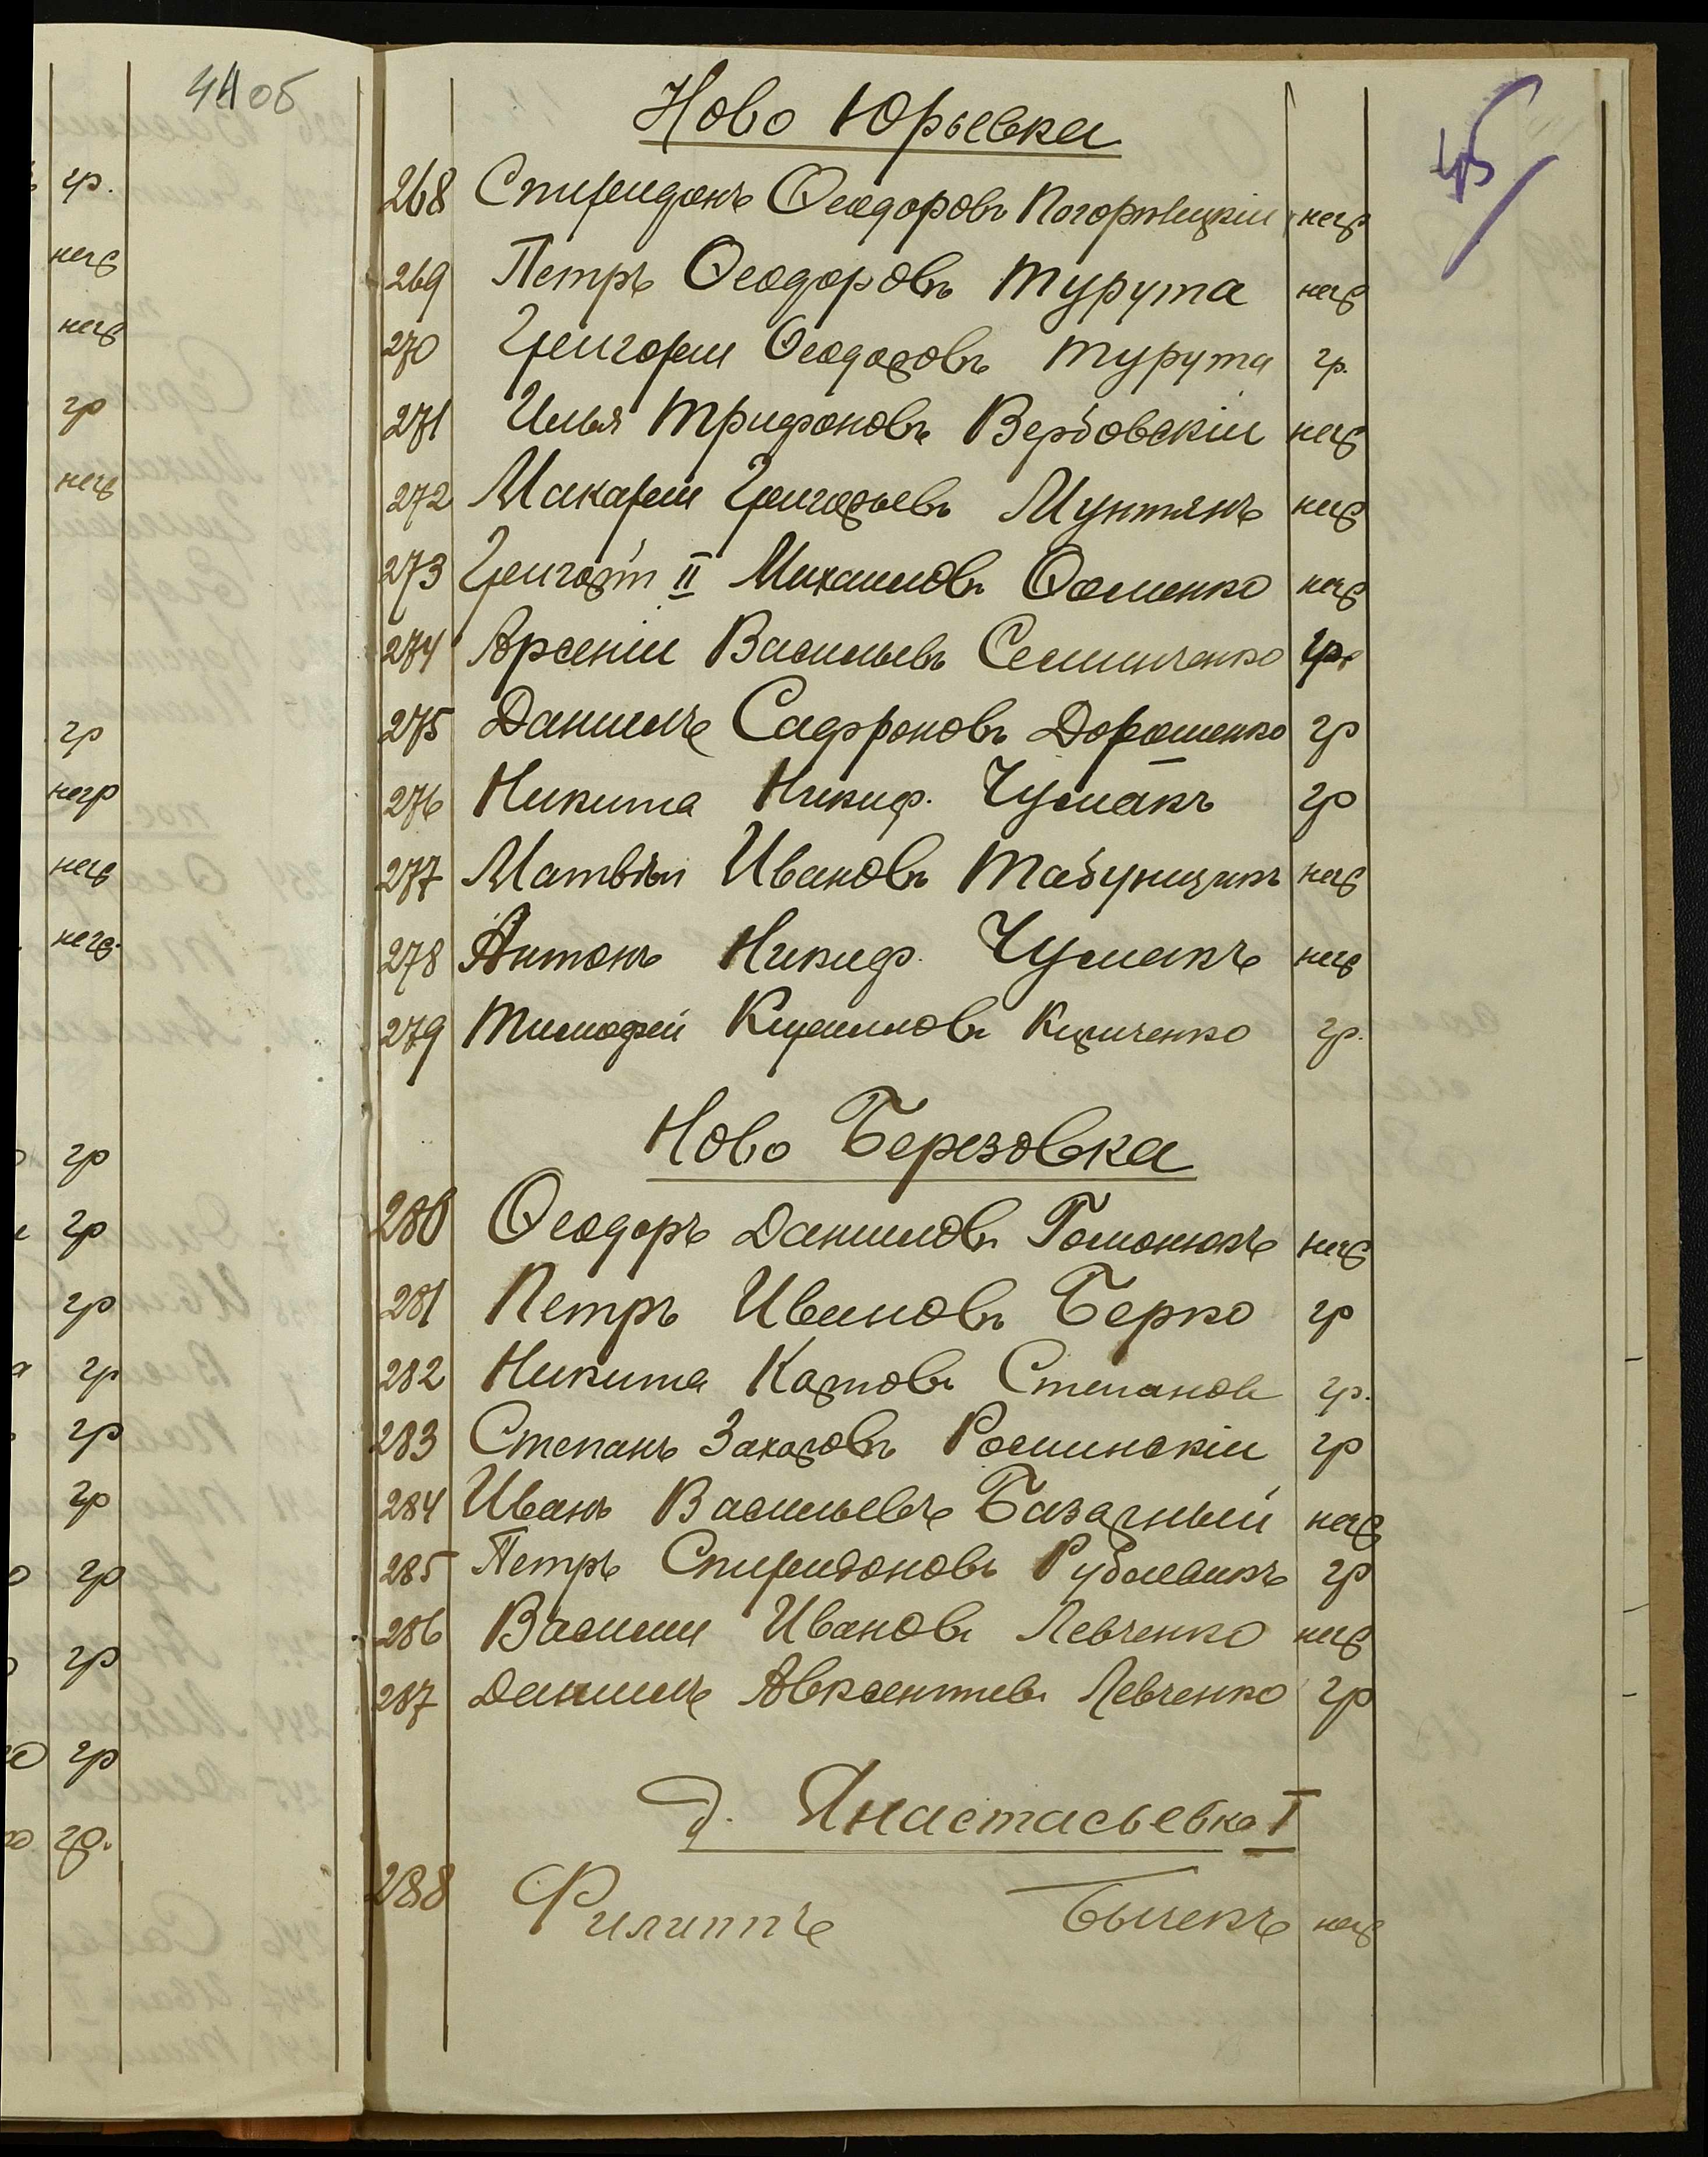 44 об
45
Ново Юрьевка
268 Спиридонъ Ѳеодоровъ Погорѣлицкій негр
269 Петръ Ѳеодоровъ Турута негр
270 Григорій Ѳеодоровъ Турута гр.
271 Илья Трифоновъ Вербовскій негр
272 Макарій Григорьевъ Мунтянъ негр
273 Григорій II Михаиловъ Фоменко негр
274 Арсеній Васильевъ Семинченко гр.
275 Даниилъ Сафроновъ Дорошенко гр
276 Никита Никиф. Чумакъ гр
277 Матвѣй Ивановъ Табунщикъ негр
278 Антонъ Никиф. Чумакъ негр
279 Тимофей Кирилловъ Кириченко гр.
Ново Березовка
280 Ѳеодоръ Даниловъ Гоманюкъ негр
281 Петръ Ивановъ Берко гр
282 Никита Карповъ Степановъ гр.
283 Степанъ Захаровъ Росинскій гр
284 Иванъ Васильевъ Базарный негр
285 Петръ Спиридоновъ гр
286 Василій Ивановъ Левченко негр
287 Даниилъ Авксентіевъ Левченко гр
д. Анастасьевка I
288 Филиппъ Бычекъ негр
гр.
негр
негр
гр
негр
гр
негр
негр
негр.
гр
гр
гр
гр
гр
гр
гр
гр
гр
гр.